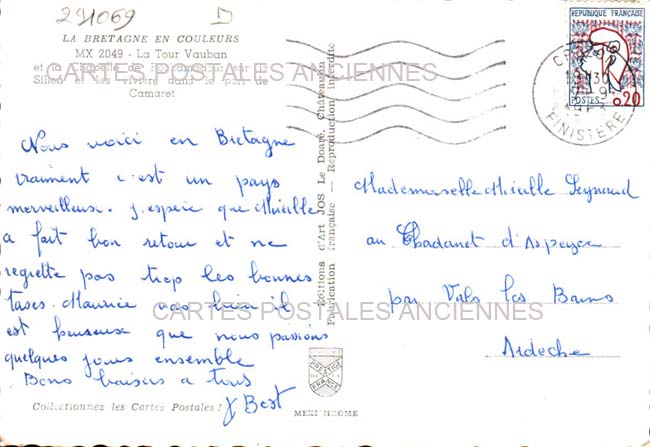 291069 D
LA BRETAGNE EN COULEURS
MX 2049 - La Tour Vauban
et la Chapelle de sur le
Sillon et les viviers dans le port de
Camaret
CARTES POSTALES ANCIENNES
Nous voici en Bretagne
vraiment c'est un pays
merveilleux. J'espère que Mireille
a fait bon retour et ne
regrette pas trop les bonnes
tases. Maurice vas bien il
est heureux que nous passions
quelques jours ensemble
Bons baisers a tous
Y Best
Collectionnez les Cartes Postales !
Editions d'Art JOS Le Doaré, Châteaulin
Fabrication française — Reproduction interdite
MEXICHROME
REPUBLIQUE FRANÇAISE
POSTES 0,20
FINISTERE
Mademoiselle Mireille
au Chadanet d'
par Vals les Bains
Ardeche
CARTES POSTALES ANCIENNES